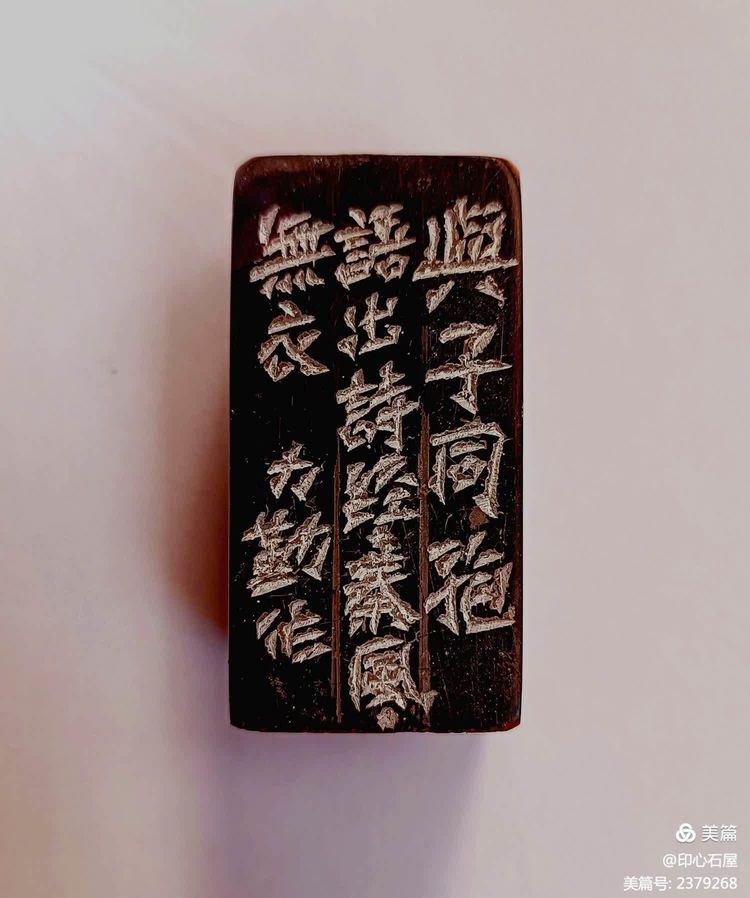 與子同袍
語出詩經秦風
無衣 力勤作
美篇
@印心石屋
美篇号: 2379268